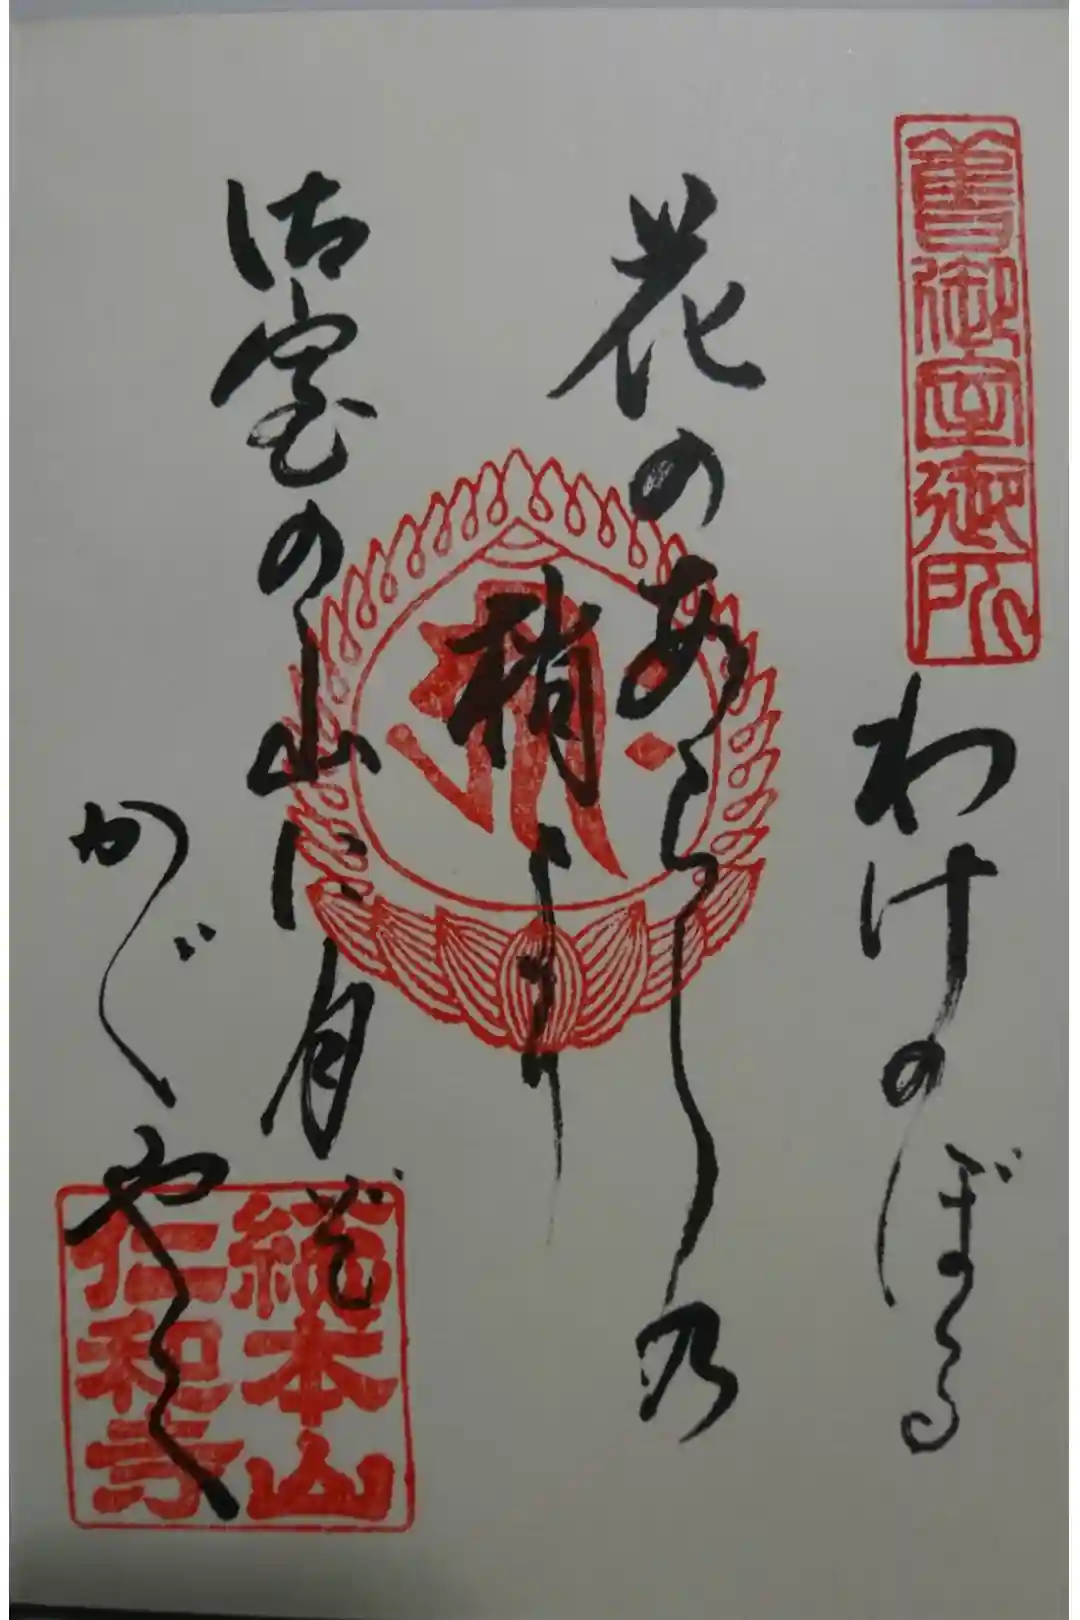 舊御室御所
わけのぼる
花のあらしの
梢より
御室の山に月ぞ
かゞやく
総本山
仁和寺